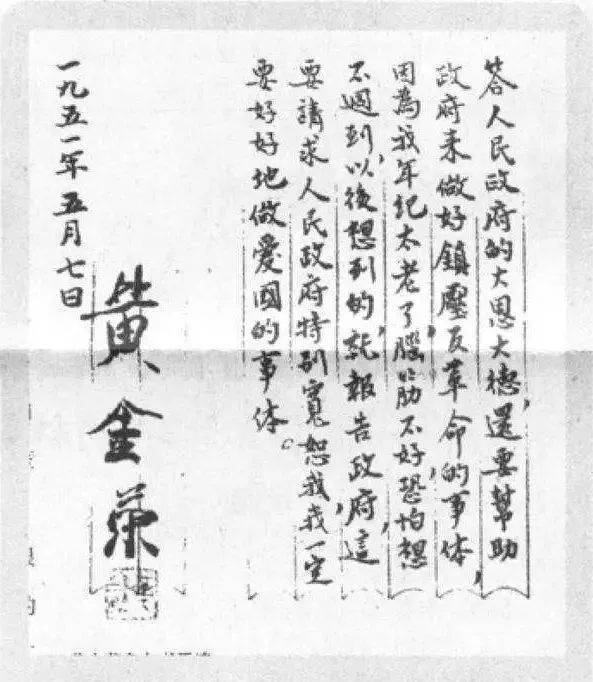 答人民政府的大恩大德，還要幫助
政府来做好鎮壓反革命的事体，
因為我年纪太老了腦筋不好恐怕想
不週到，以後想到的，就報告政府，這
要請求人民政府特别寬恕我我一定
要好好地做爱國的事体。
一九五一年五月七日
黄金荣